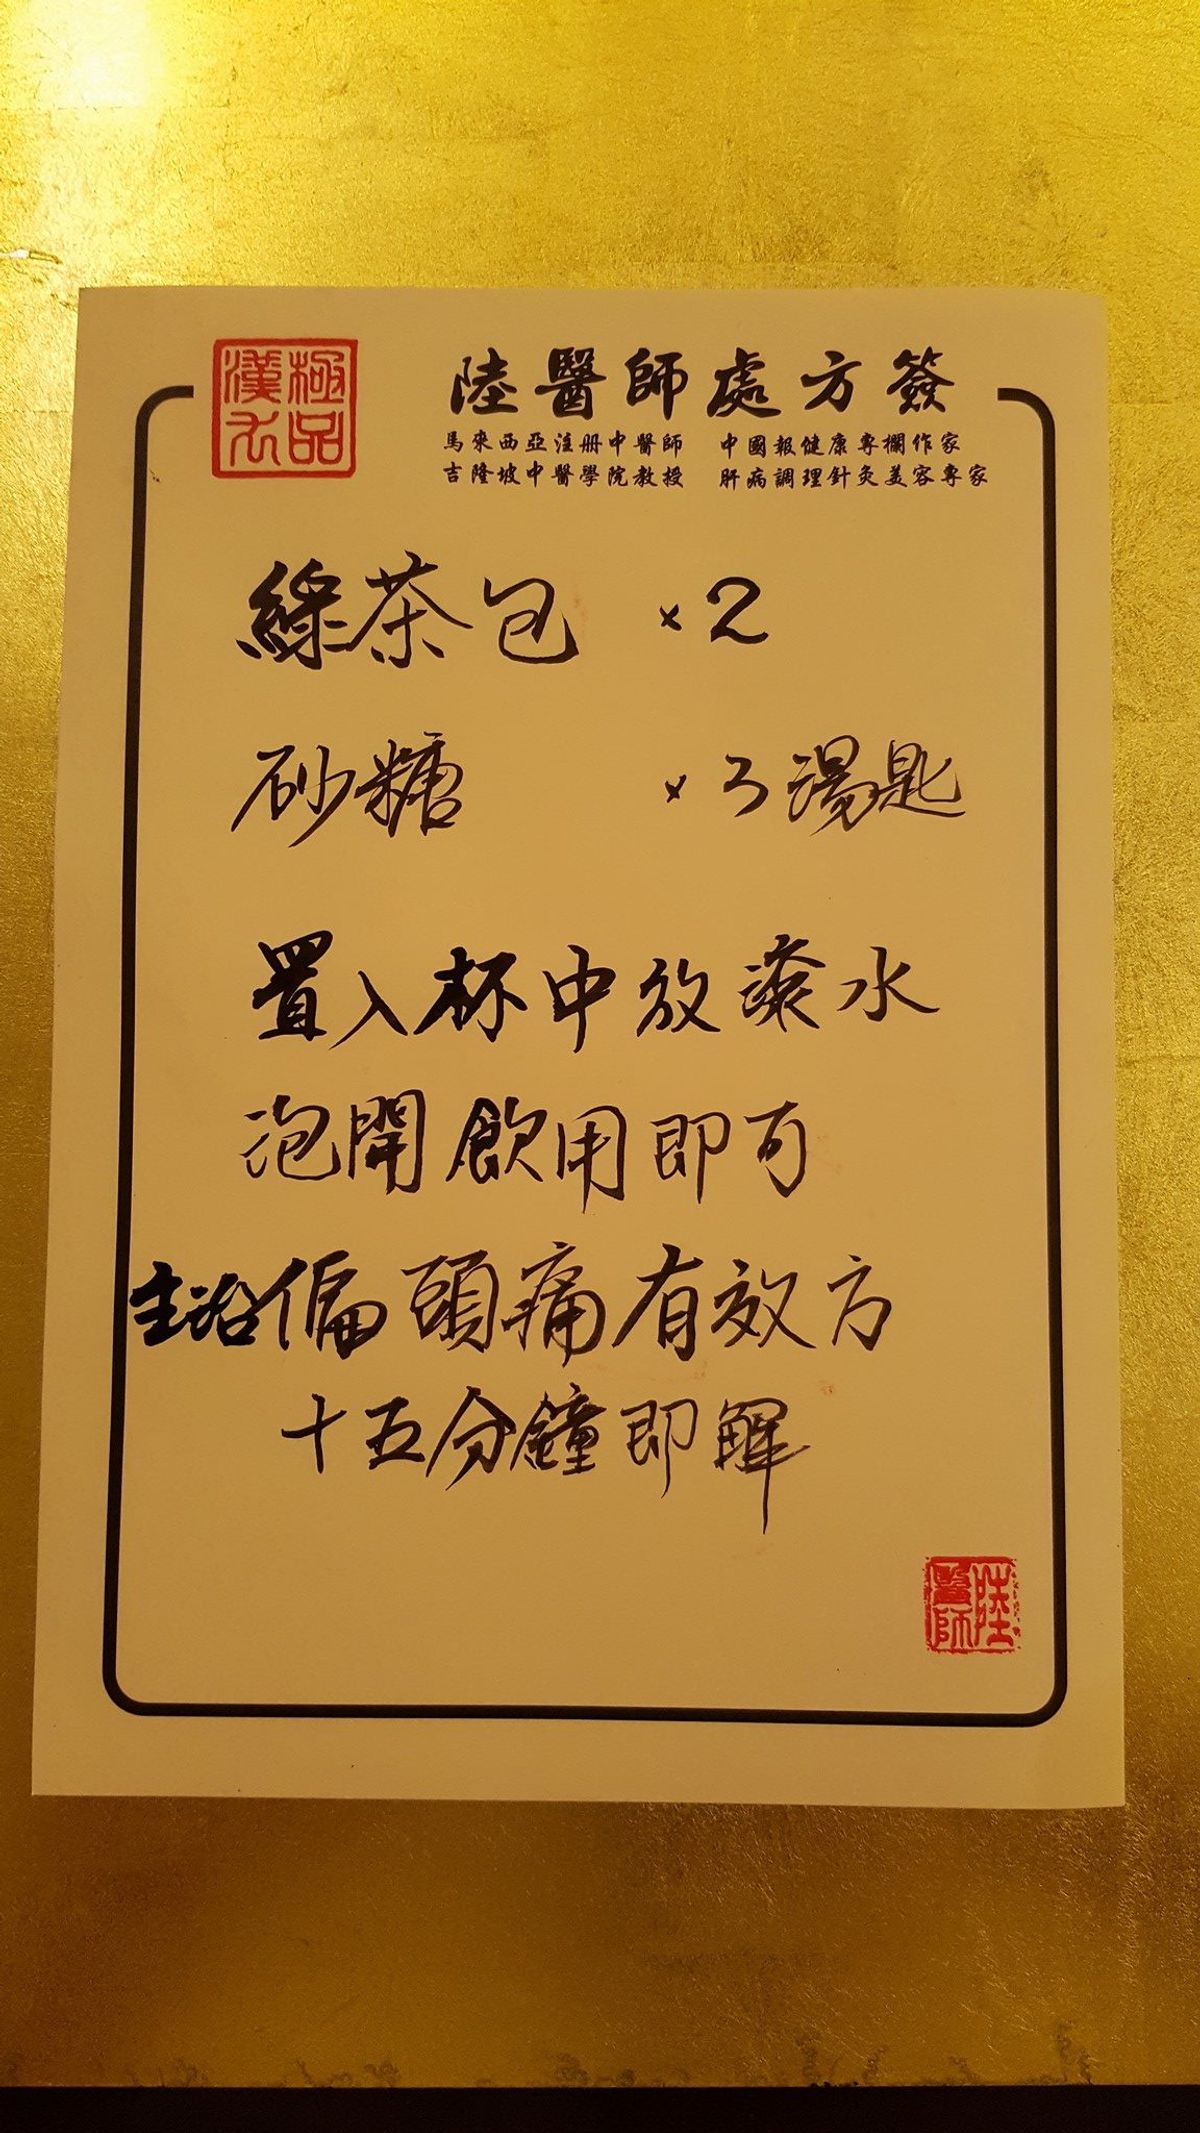 極品
漢方
陸醫師處方簽
馬來西亞注册中醫師 中國報健康專欄作家
吉隆坡中醫學院教授 肝病調理針灸美容專家
綠茶包 ×2
砂糖 ×3湯匙
置入杯中放滾水
泡開飲用即可
主治偏頭痛有效方
十五分鐘即解
陸醫師